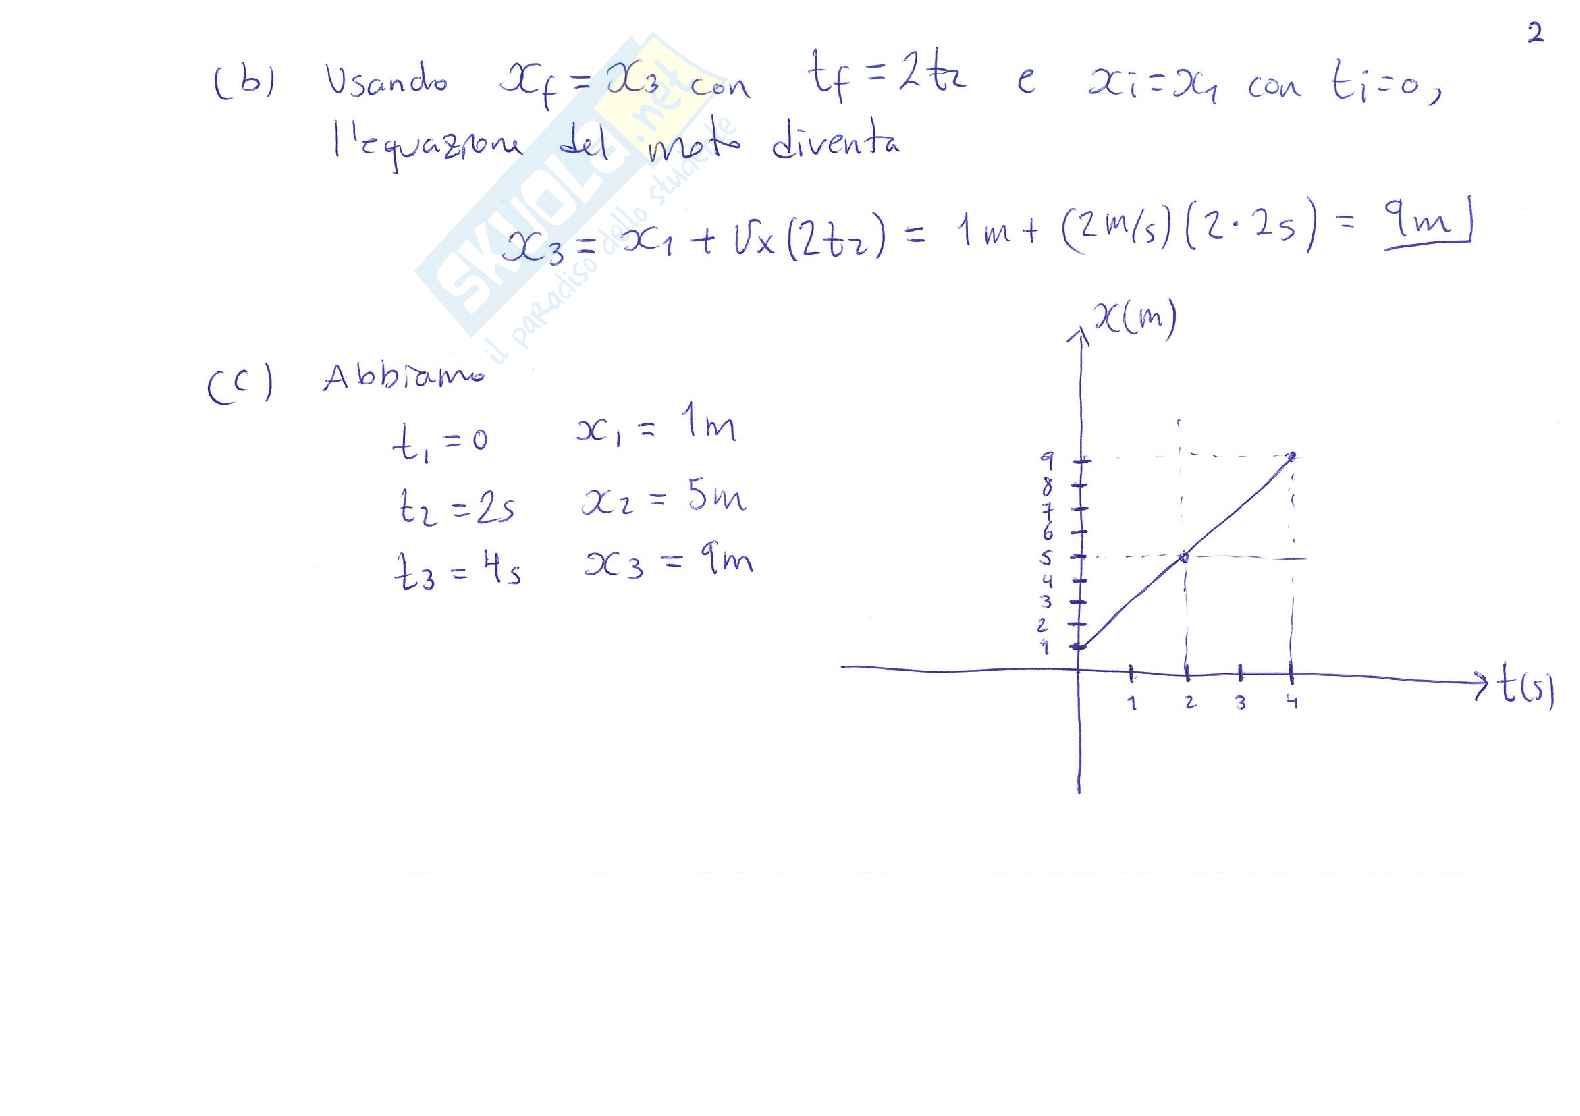 2
(b) Usando x_f = x_3 con t_f = 2t_2 e x_i = x_1 con t_i = 0,
l'equazione del moto diventa
x_3 = x_1 + v_x (2t_2) = 1m + (2m/s)(2·2s) = 9m
SKUOLA.net
il paradiso dello studente
(c) Abbiamo
t_1 = 0 x_1 = 1m
t_2 = 2s x_2 = 5m
t_3 = 4s x_3 = 9m
x(m)
9
8
7
6
5
4
3
2
1
1 2 3 4
t(s)